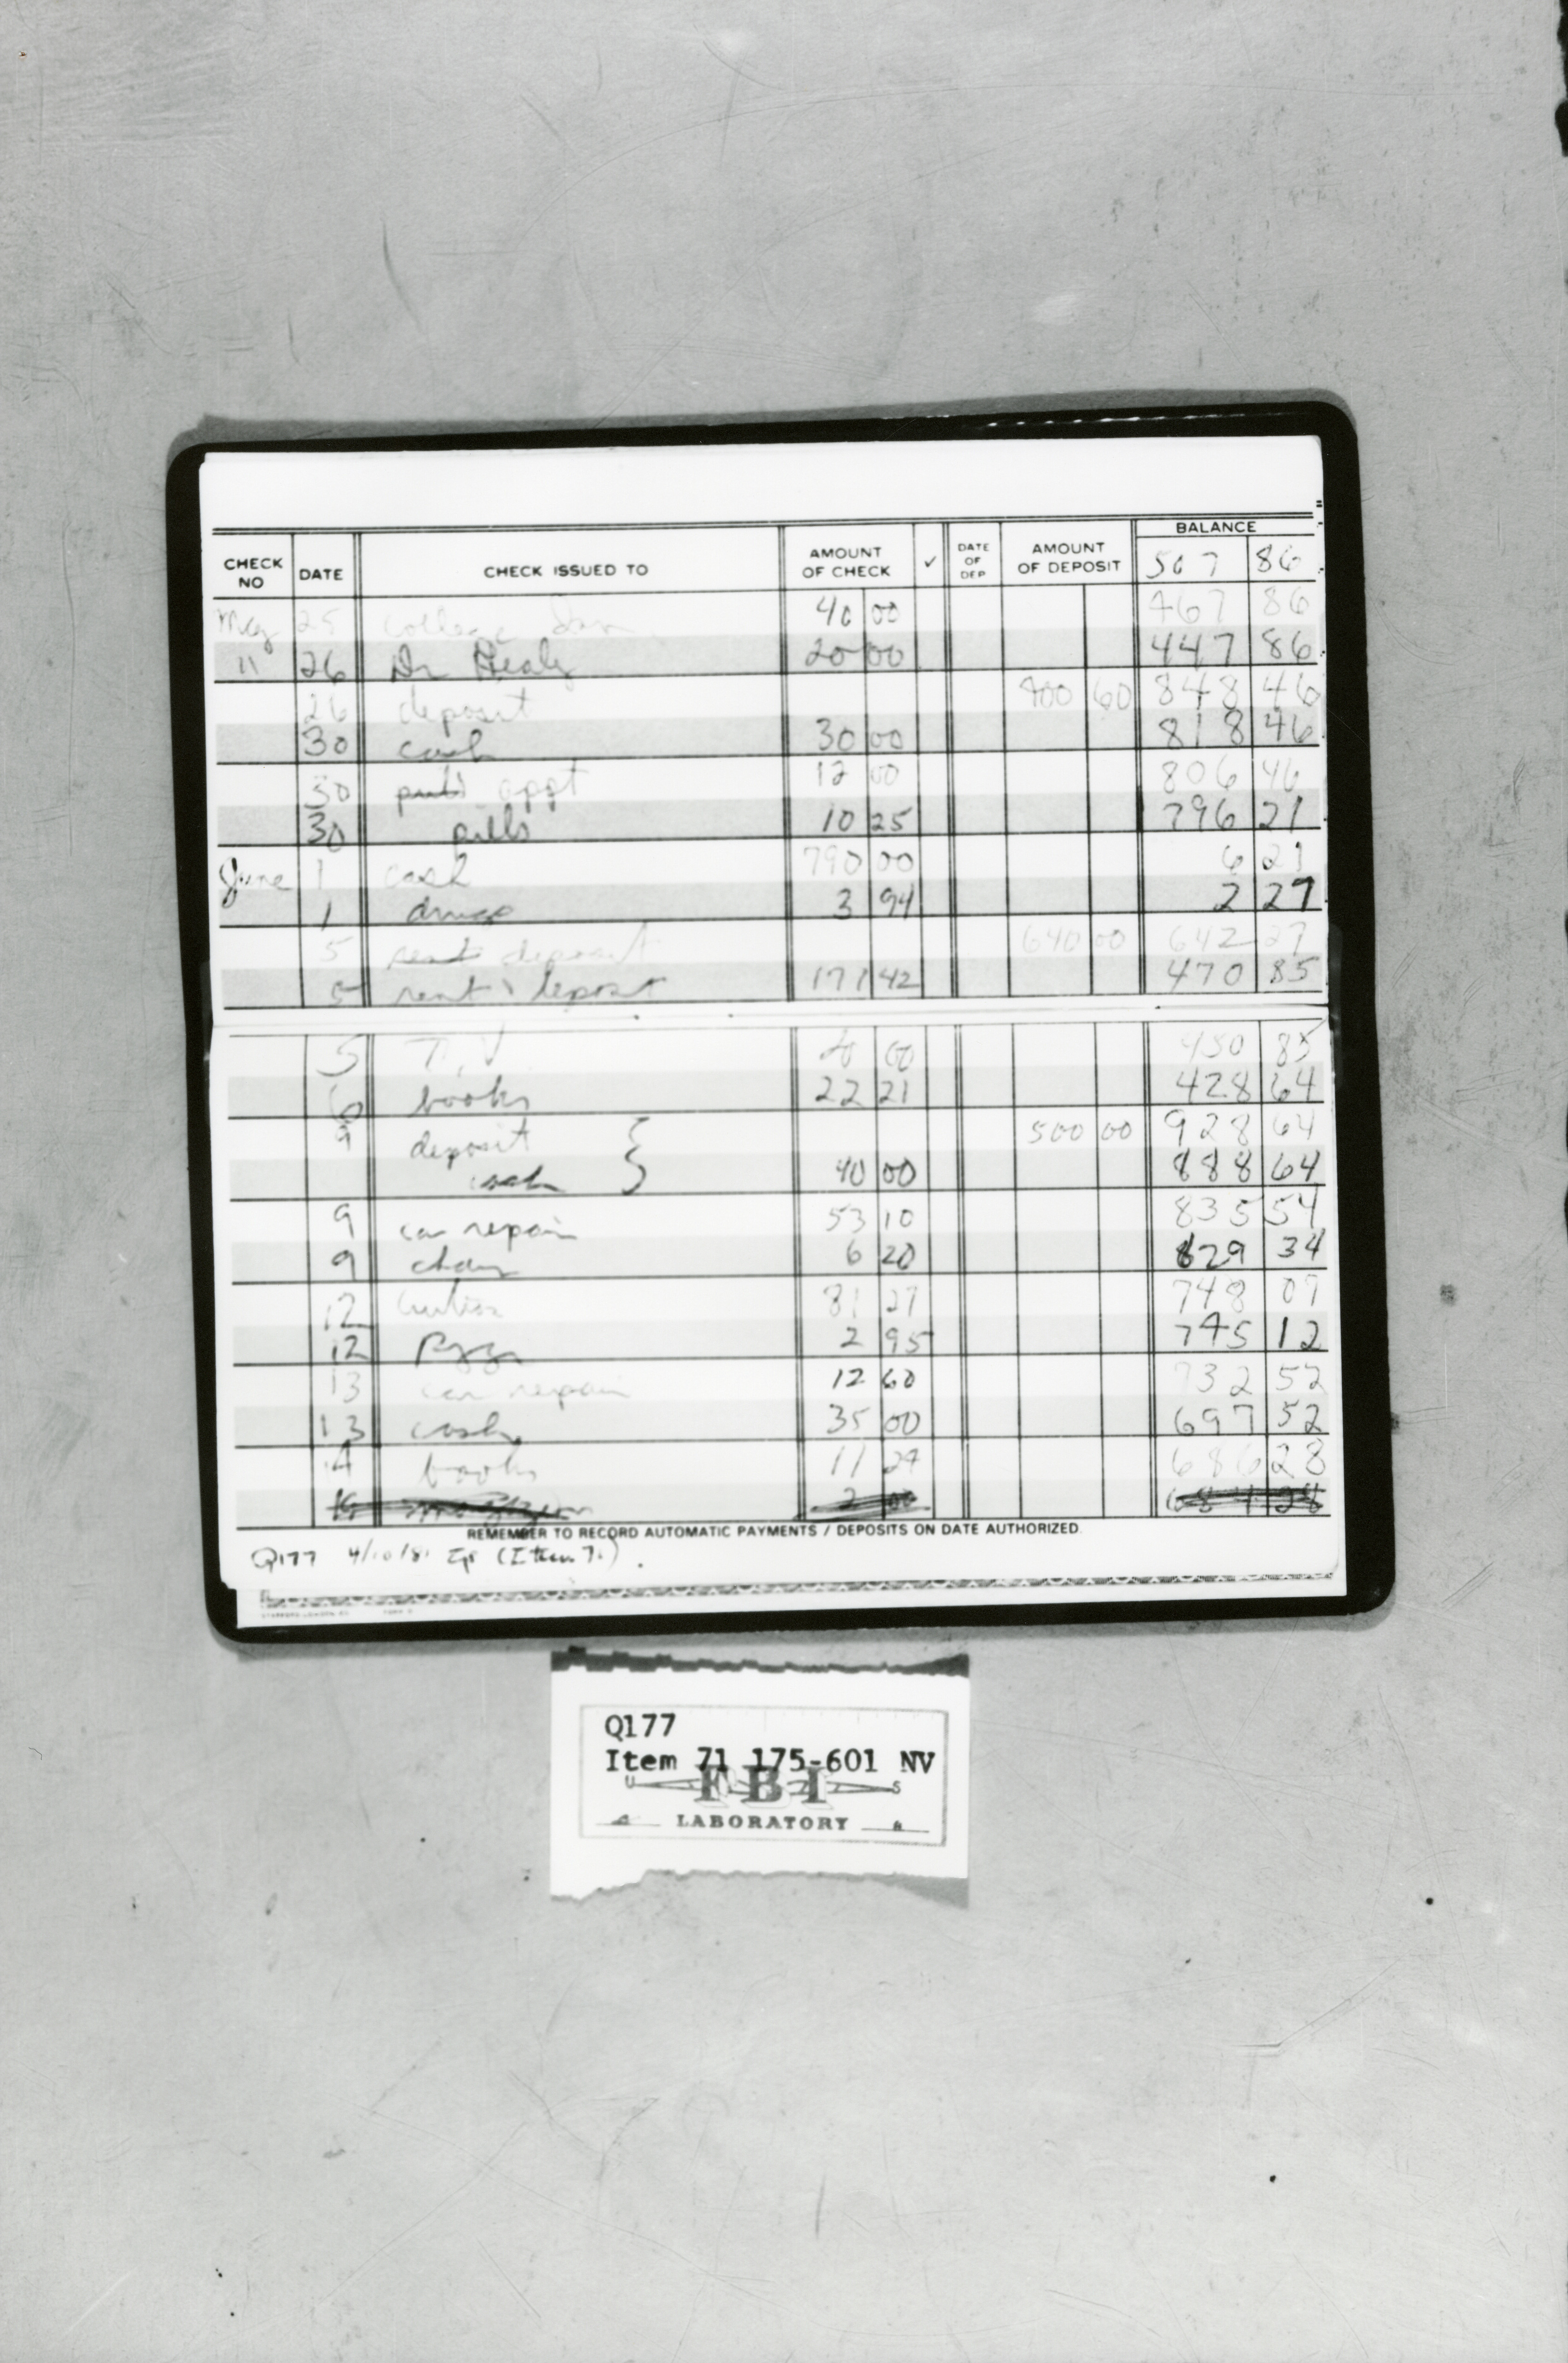 BALANCE
CHECK NO DATE CHECK ISSUED TO AMOUNT OF CHECK ✓ DATE OF DEP AMOUNT OF DEPOSIT 507 86
May 25 college 40 00 467 86
11 26 Dr Healy 20 00 447 86
26 deposit 400 60 848 46
30 cash 30 00 818 46
30 appt 12 00 806 46
30 pills 10 25 796 21
June 1 cash 790 00 6 21
1 drugs 3 94 2 27
5 rent deposit 640 00 642 27
5 rent & deposit 171 42 470 85
5 T.V. 20 00 450 85
6 books 22 21 428 64
9 deposit 500 00 928 64
cash 40 00 888 64
9 car repair 53 10 835 54
9 chair 6 20 829 34
12 81 27 748 07
12 Pizza 2 95 745 12
13 car repair 12 60 732 52
13 cash 35 00 697 52
14 books 11 24 686 28
16 2 00 684 28
REMEMBER TO RECORD AUTOMATIC PAYMENTS / DEPOSITS ON DATE AUTHORIZED.
Q177 4/10/81 (Item 71)
Q177
Item 71 175-601 NV
U S
FBI
LABORATORY